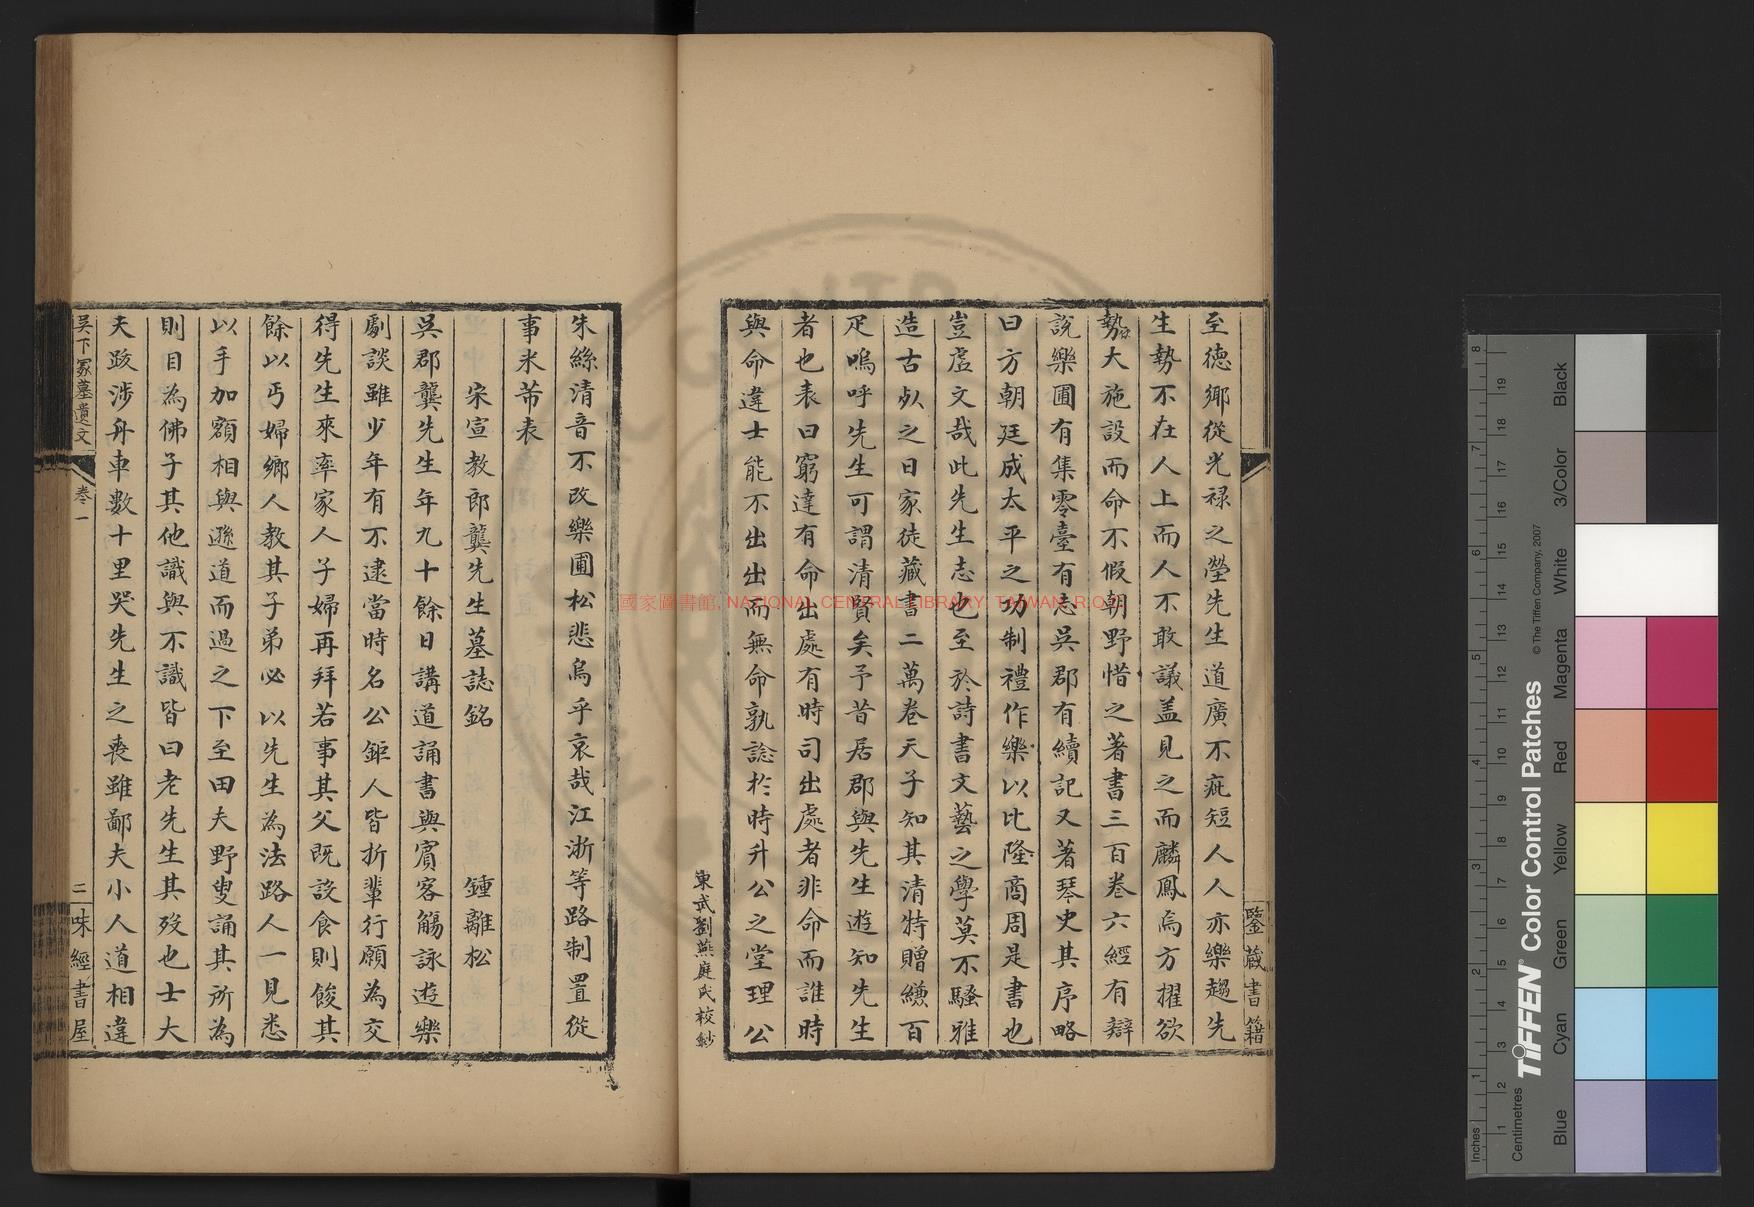 至德鄉從光禄之塋先生道廣不疵短人人亦樂趨先
生勢不在人上而人不敢議盖見之而麟鳳焉方擢欲
勢大施設而命不假朝野惜之著書三百卷六經有辯
說樂圃有集零臺有志吳郡有續記又著琴史其序略
曰方朝廷成太平之功制禮作樂以比隆商周是書也
豈虛文哉此先生志也至於詩書文藝之學莫不騷雅
造古㸃之日家徒藏書二萬卷天子知其清特贈縑百
疋嗚呼先生可謂清賢矣予昔居郡與先生遊知先生
者也表曰窮達有命出處有時司出處者非命而誰時
與命違士能不出出而無命孰諗於時升公之堂理公
鑒藏書籍
東武劉燕庭氏校鈔
朱絲清音不改樂圃松悲烏乎哀哉江浙等路制置從
事米芾表
宋宣教郎龔先生墓誌銘 鍾離松
吳郡龔先生年九十餘日講道誦書與賓客觴詠遊樂
劇談雖少年有不逮當時名公鉅人皆折輩行願為交
得先生來率家人子婦再拜若事其父既設食則餕其
餘以丐婦鄉人教其子弟必以先生為法路人一見悉
以手加額相與遜道而過之下至田夫野叟誦其所為
則目為佛子其他識與不識皆曰老先生其歿也士大
夫跋涉舟車數十里哭先生之喪雖鄙夫小人道相違
吳下冢墓遺文 卷一 二 味經書屋
國家圖書館, NATIONAL CENTRAL LIBRARY, TAIWAN, R.O.C.
Inches 1 2 3 4 5 6 7 8
Centimetres
TIFFEN® Color Control Patches
© The Tiffen Company, 2007
Blue Cyan Green Yellow Red Magenta White 3/Color Black